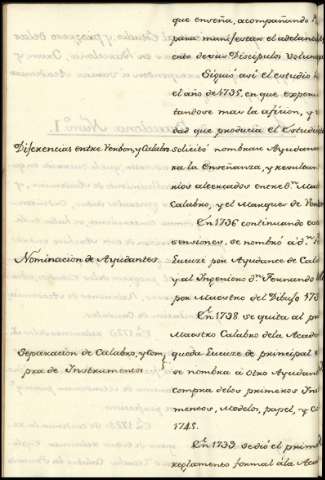 que enseña, acompañando
para manifestar el adelanta
ento de sus Discipulos Volunta
Siguió así el estudio
el año de 1735, en que experi
tandose mas la aficion, y
dad que producia el Estudio
Diferencias entre Verbon, y Calabro
solicitó nombrase Ayudan
ra la Enseñanza, y resultan
rios altercados entre dn. M
Calabro, y el Marques de Verbo
En 1736 continuando
sensiones, se nombró a dn.
Nominacion de Ayudantes
Lucuze por Ayudante de Cala
y al Ingeniero dn. Fernando
por Maestro del Dibujo
En 1738 se quita al pri
Maestro Calabro de la Acade
Separacion de Calabro, y Com
pra de Instrumentos
queda Lucuze de principal
se nombra a otro Ayudan
compra de los primeros Ins
mentos, Modelos, papel, y
1745.
En 1739 se dió el prime
Reglamento formal á la Aca